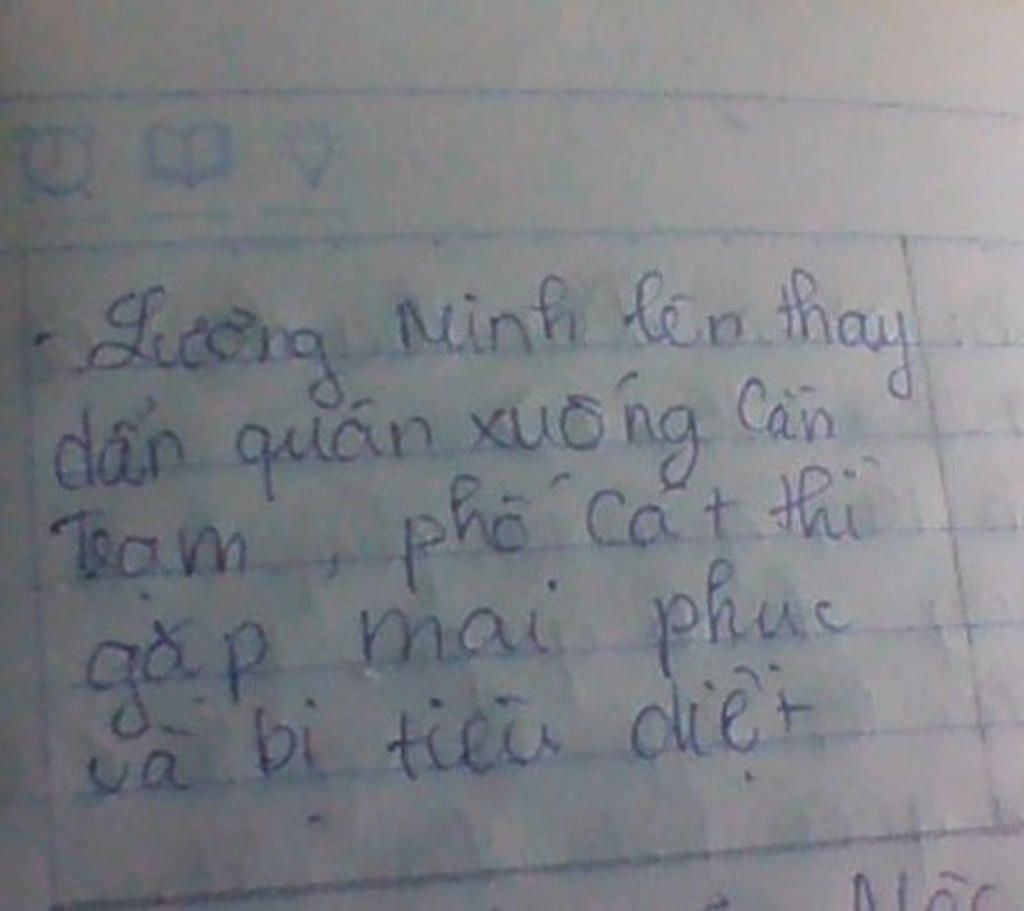 - Lương Minh lên thay
dẫn quân xuống Cần
Trạm, phố Cát thì
gặp mai phục
và bị tiêu diệt